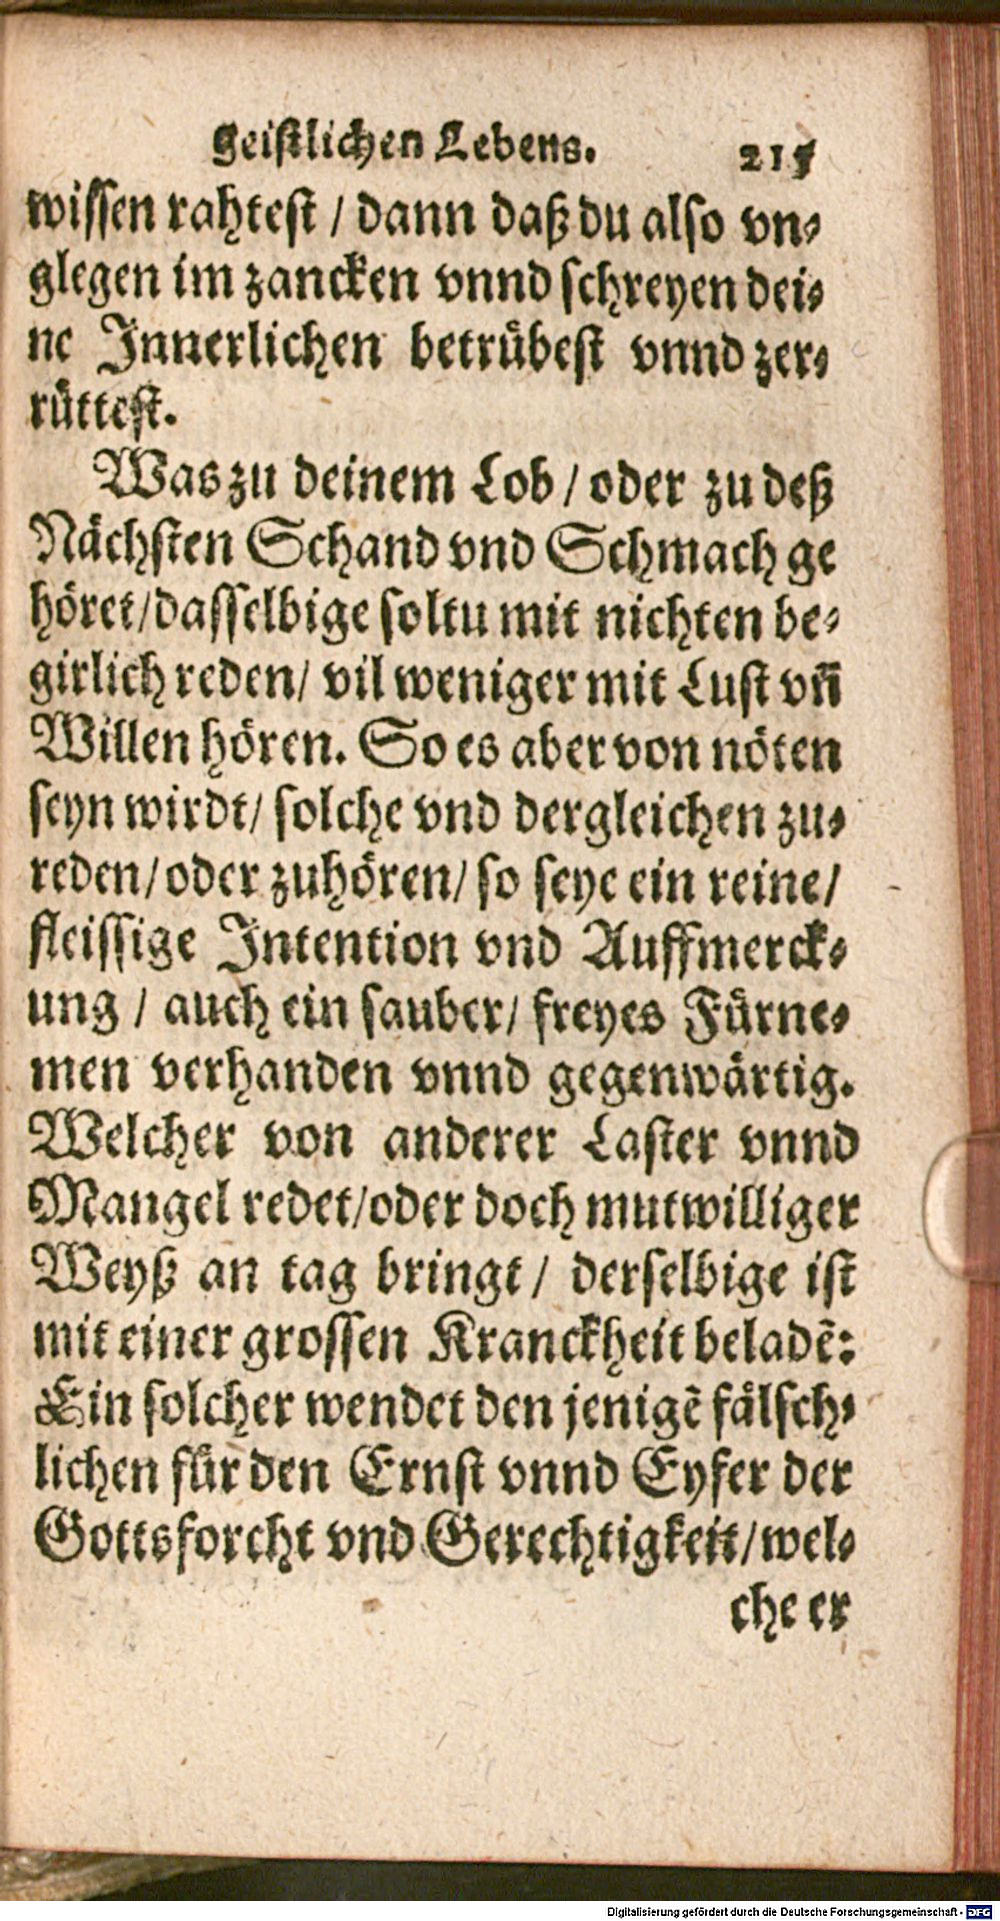 geistlichen Lebens. 215
wissen rahtest / dann daß du also vn⸗
glegen im zancken vnnd schreyen dei⸗
ne Innerlichen betrübest vnnd zer⸗
rüttest.
Was zu deinem Lob / oder zu deß
Nächsten Schand vnd Schmach ge
höret/dasselbige soltu mit nichten be⸗
girlich reden/ vil weniger mit Lust vn̄
Willen hören. So es aber von nöten
seyn wirdt/ solche vnd dergleichen zu⸗
reden/oder zuhören/ so seye ein reine/
fleissige Intention vnd Auffmerck⸗
ung / auch ein sauber/ freyes Fürne⸗
men verhanden vnnd gegenwärtig.
Welcher von anderer Laster vnnd
Mangel redet/oder doch mutwilliger
Weyß an tag bringt/ derselbige ist
mit einer grossen Kranckheit beladē:
Ein solcher wendet den jenigē fälsch⸗
lichen für den Ernst vnnd Eyfer der
Gottsforcht vnd Gerechtigkeit/wel⸗
che er
Digitalisierung gefördert durch die Deutsche Forschungsgemeinschaft - DFG